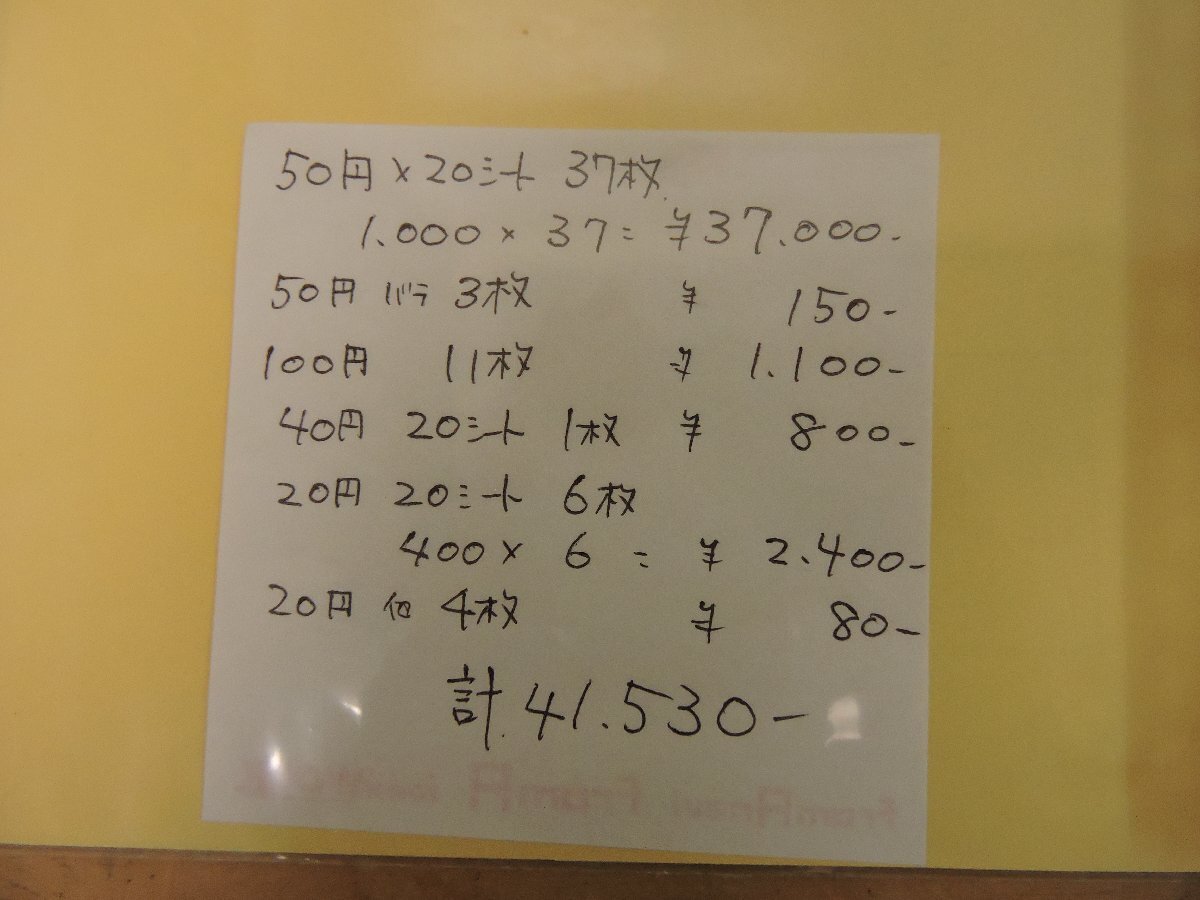 50円×20シート 37枚
1.000×37=¥37.000-
50円 バラ 3枚 ¥ 150-
100円 11枚 ¥ 1.100-
40円 20シート 1枚 ¥ 800-
20円 20シート 6枚
400× 6 = ¥ 2.400-
20円 他 4枚 ¥ 80-
計.41.530-